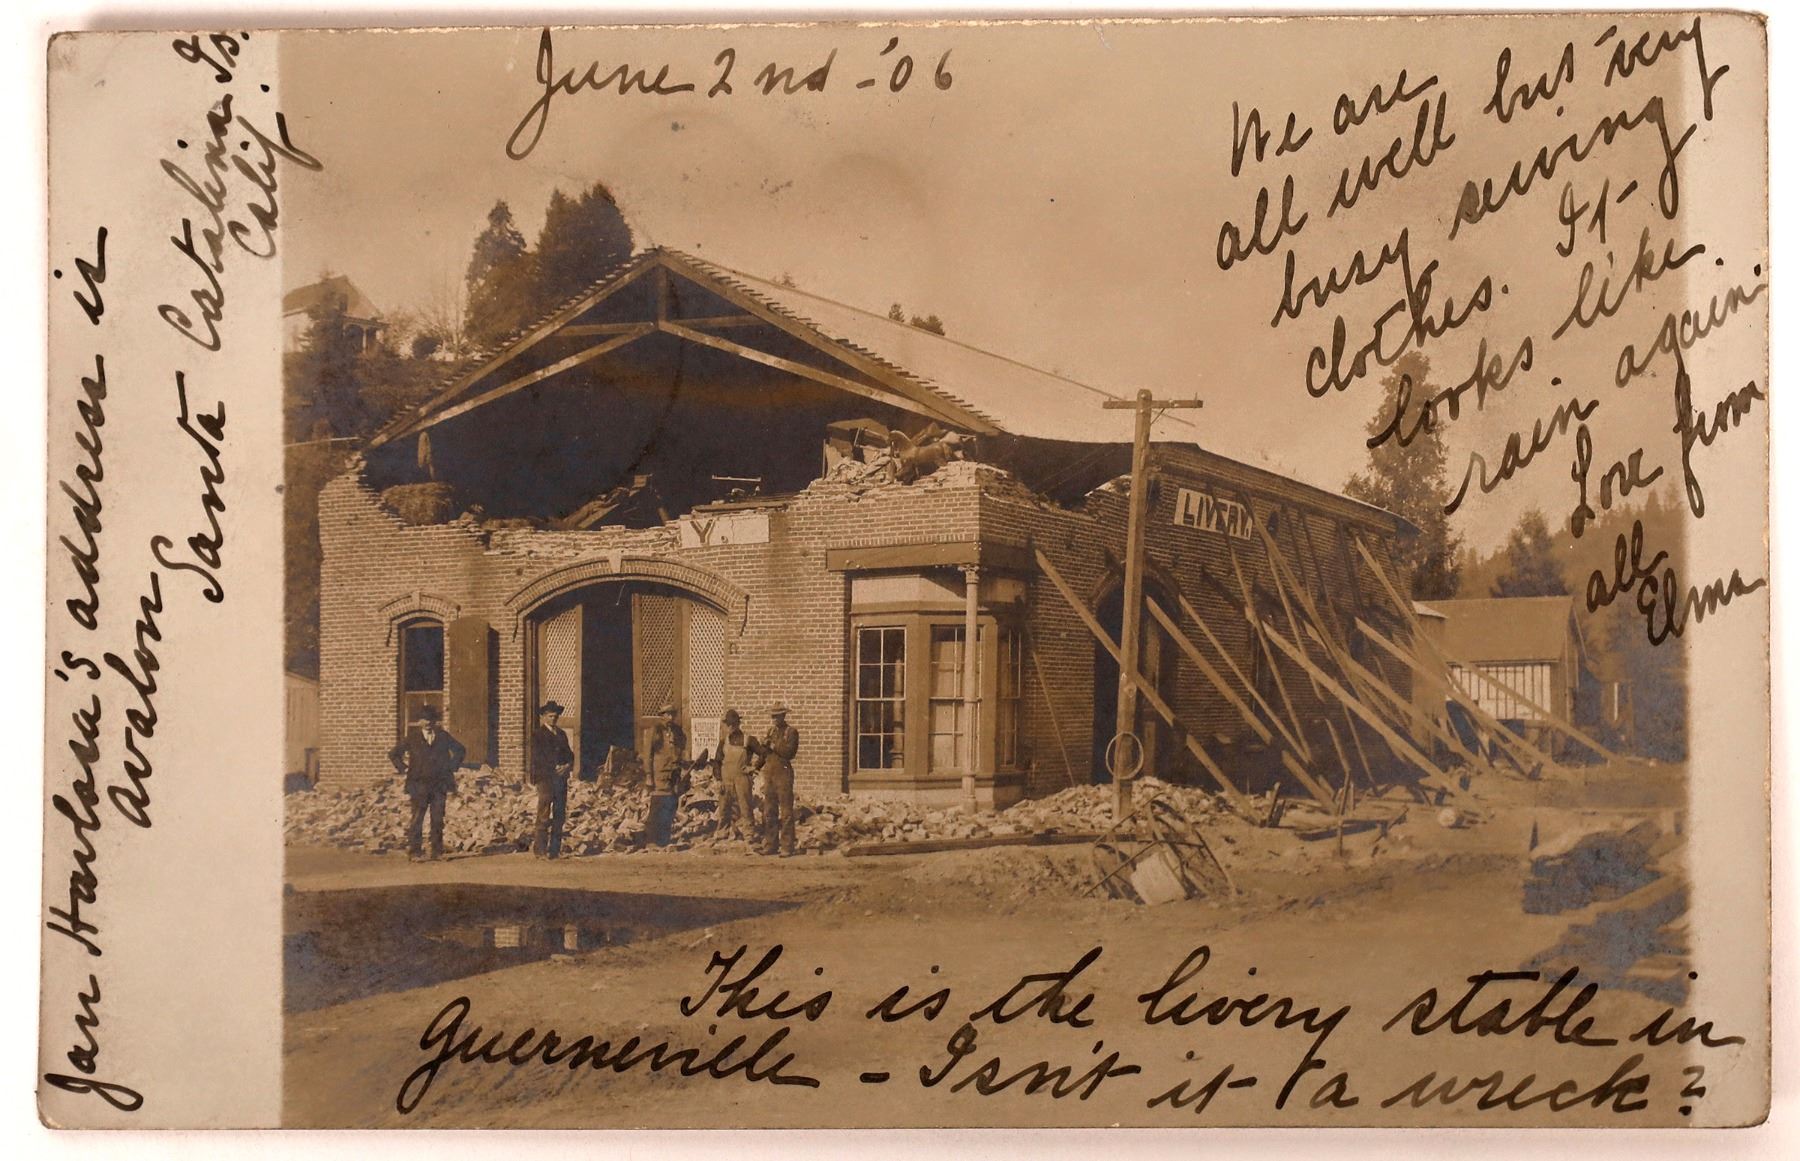 June 2nd - '06
We are
all well but very
busy sewing
clothes. It
looks like
rain again.
Love from
all
Elma
Y.
LIVERY
This is the livery stable in
Guerneville - Isn't it a wreck?
address is
Avalon
Santa Catalina Is.
Calif.